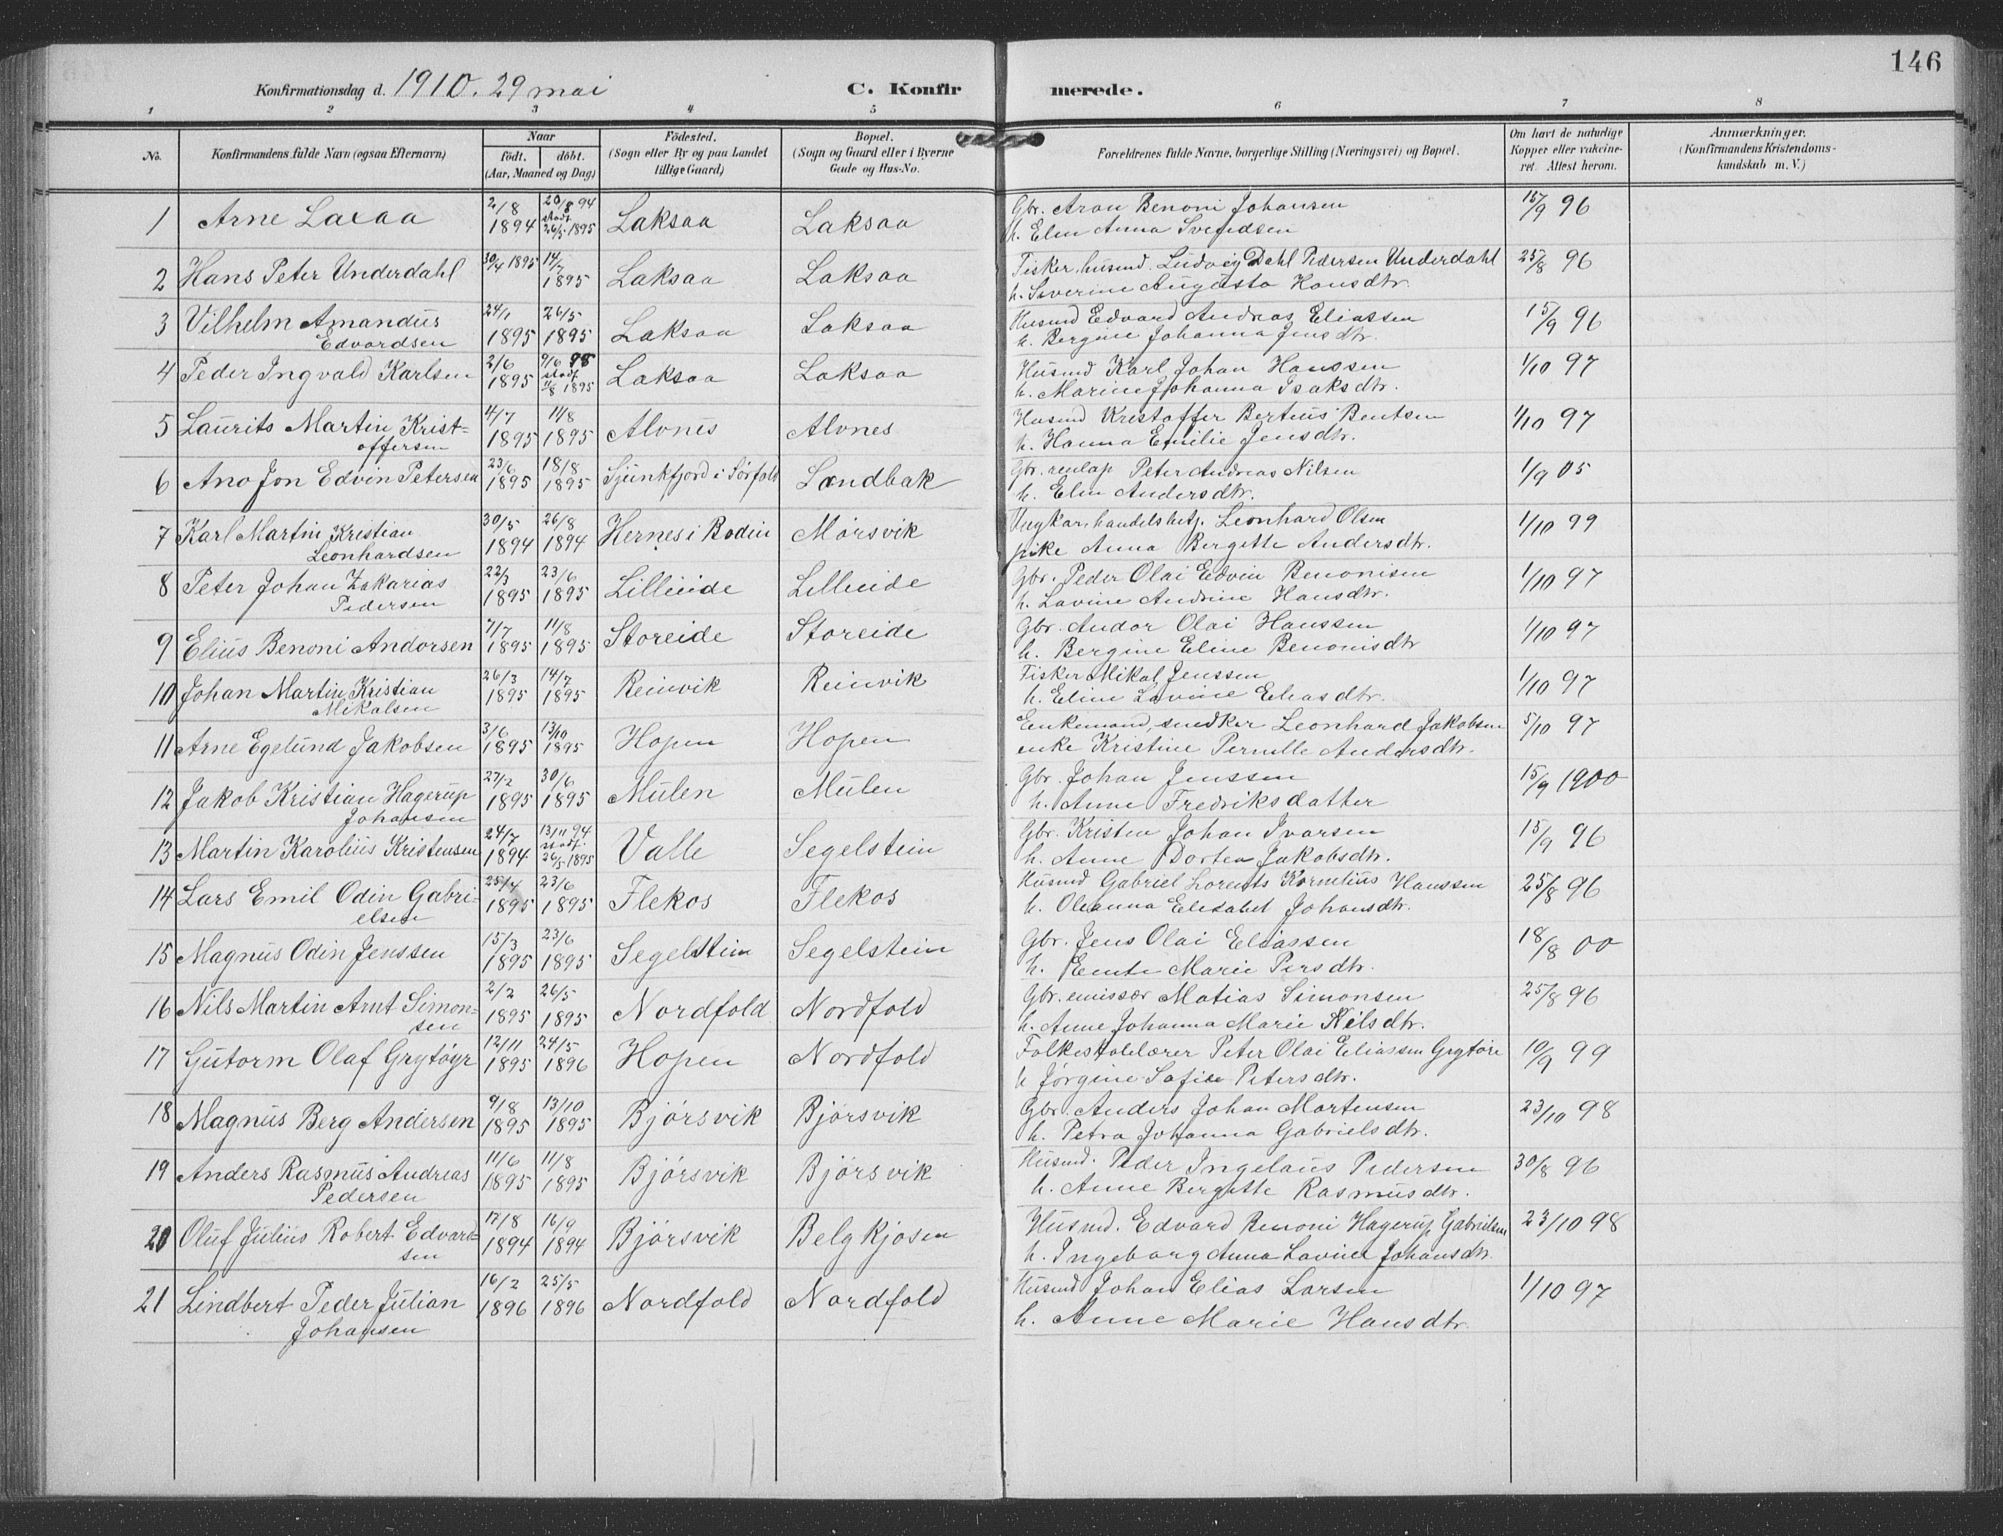 146
Konfirmationsdag d. 1910. 29 mai C. Konfirmerede.
1 2 3 4 5 6 7 8
No. Konfirmandens fulde Navn (ogsaa Efternavn) Naar födt. döbt. (Aar, Maaned og Dag) Födested. (Sogn eller By og paa Landet tillige Gaard) Bopæl. (Sogn og Gaard eller i Byerne Gade og Hus-No. Forældrenes fulde Navne, borgerlige Stilling (Næringsvei) og Bopæl. Om havt de naturlige Kopper eller vakcineret. Attest herom. Anmærkninger. (Konfirmandens Kristendomskundskab m. V.)
1 Arne Laxaa 2/8 1894 20/8 94 stadf. 26/5 1895 Laksaa Laksaa Gbr. Aron Benoni Johansen 15/9 96
h. Elen Anna Svendsen
2 Hans Peter Underdahl 30/4 1895 14/7 1895 Laksaa Laksaa Fisker, husmd. Ludvig Dahl Pedersen Underdahl 25/8 96
h. Severine Augusta Hansdtr.
3 Vilhelm Amandus Edvardsen 24/1 1895 26/5 1895 Laksaa Laksaa Husmd Edvard Andreas Eliassen 15/9 96
h. Bergine Johanna Jensdtr.
4 Peder Ingvald Karlsen 2/6 1895 9/6 95 stadf. 11/8 1895 Laksaa Laksaa Husmd Karl Johan Hanssen 1/10 97
h. Marine Johanna Isaksdtr.
5 Laurits Martin Kristoffersen 4/7 1895 11/8 1895 Alvnes Alvnes Husmd Kristoffer Berteus Bentsen 1/10 97
h. Hanna Emilie Jensdtr.
6 Ano Jon Edvin Petersen 23/6 1895 18/8 1895 Sjunkfjord i Sørfold Sandbak Gbr. renlap Peter Andreas Nilsen 1/9 05
h. Elen Andersdtr.
7 Karl Martin Kristian Leonhardsen 30/5 1894 26/8 1894 Hernes i Bodin Mørsvik Ungkar, handelsbetj. Leonhard Olsen 1/10 99
pike Anna Bergette Andersdtr.
8 Peter Johan Zakarias Pedersen 22/3 1895 23/6 1895 Lilleeide Lilleeide Gbr. Peder Olai Edvin Benonisen 1/10 97
h. Lavine Andrine Hansdtr.
9 Elius Benoni Andorsen 7/7 1895 11/8 1895 Storeide Storeide Gbr. Andor Olai Hanssen 1/10 97
h. Bergine Eline Benonisdtr
10 Johan Martin Kristian Mikalsen 26/3 1895 14/7 1895 Reinvik Reinvik Fisker Mikal Jenssen 1/10 97
h. Elen Lavine Eliasdtr.
11 Arne Egelund Jakobsen 3/6 1895 13/10 1895 Hopen Hopen Enkemand, snedker Leonhard Jakobsen 5/10 97
enke Kristine Pernille Andersdtr.
12 Jakob Kristian Hagerup Johansen 27/2 1895 30/6 1895 Mulen Mulen Gbr. Johan Jenssen 15/9 1900
h. Anne Fredriksdatter
13 Martin Karolius Kristensen 24/7 1894 13/11 94 stadf. 26/5 1895 Valle Segelstein Gbr. Kristen Johan Ivarsen 15/9 96
h. Anne Dortea Jakobsdtr.
14 Lars Emil Odin Gabrielsen 25/4 1895 23/6 1895 Flekos Flekos Husmd Gabriel Lorents Kornelius Hanssen 25/8 96
h. Oleanna Elisabet Johansdtr.
15 Magnus Odin Jenssen 15/3 1895 23/6 1895 Segelstein Segelstein Gbr. Jens Olai Eliassen 18/8 00
h. Marie Persdtr.
16 Nils Martin Arnt Simonsen 2/2 1895 26/5 1895 Nordfold Nordfold Gbr. emissær Matias Simonsen 25/8 96
h. Anne Johanna Marie Nilsdtr.
17 Gutorm Olaf Grytøyr 12/11 1895 24/5 1896 Hopen Nordfold Folkeskolelærer Peter Olai Eliassen Grytøir 10/9 99
h Jørgine Sofie Petersdtr.
18 Magnus Berg Andersen 9/8 1895 13/10 1895 Bjørsvik Bjørsvik Gbr. Anders Johan Mortensen 23/10 98
h. Petra Johanna Gabrielsdtr.
19 Anders Rasmus Andreas Pedersen 11/6 1895 11/8 1895 Bjørsvik Bjørsvik Husmd. Peder Ingelaus Pedersen 30/8 96
h. Anne Bergette Rasmusdtr.
20 Oluf Julius Robert Edvardsen 17/8 1894 16/9 1894 Bjørsvik Belgkjosen Husmd. Edvard Benoni Hagerup Gabrielsen 23/10 98
h. Ingeborg Anna Lavine Johansdtr.
21 Lindbert Peder Julian Johansen 16/2 1896 25/5 1896 Nordfold Nordfold Husmd Johan Elias Larsen 1/10 97
h. Anne Marie Hansdtr.